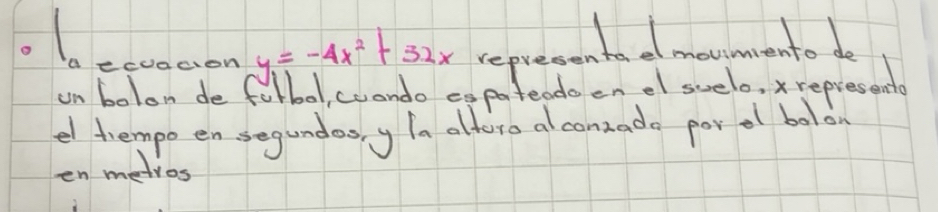 • La ecuacion y = -4x² + 32x representa el movimiento de
un balon de futbol, cuando es pateado en el suelo, x representa
el tiempo en segundos, y la altura alcanzada por el balon
en metros